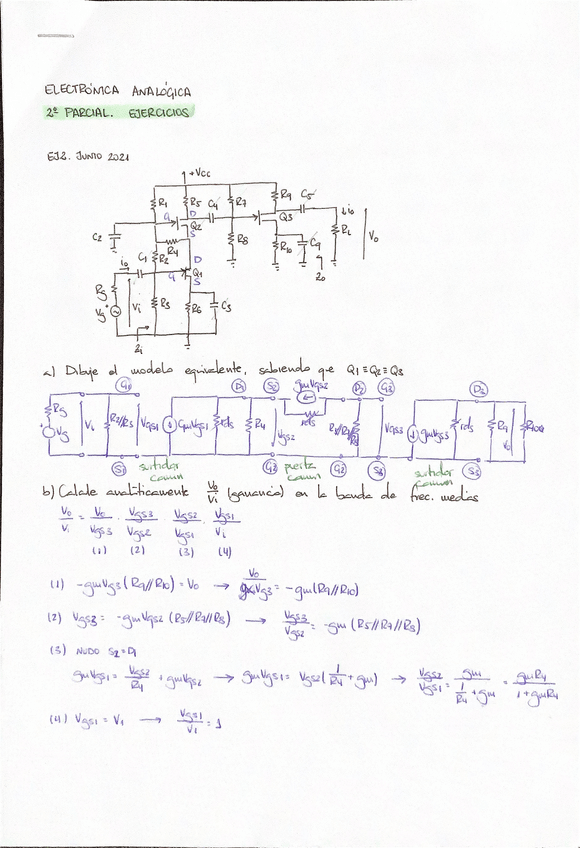 ELECTRÓNICA ANALÓGICA
2º PARCIAL. EJERCICIOS
EJ2. JUNIO 2021
+Vcc
R1 R5 D C4 R7 R9 C5
G Q2 Q3 io
C2 S R4 R8 R10 C9 RL Vo
C1 R2 D
ig G Q1 Zo
Rg S
Vg Vi R3 R6 C3
Zi
a) Dibuje el modelo equivalente, sabiendo que Q1≡Q2≡Q3
G1 D1 S2 gmVgs2 D2 G3 D3
Rg Vi R2//R3 Vgs1 gmVgs1 rds R4 Vgs2 rds Vgs3 gmVgs3 rds R9 Vo
Vg
S1 surtidor común puerta común G2 S3 surtidor común S3
b) Calcule analíticamente Vo/Vi (ganancia) en la banda de frec. medias
Vo/Vi = Vo/Vgs3 · Vgs3/Vgs2 · Vgs2/Vgs1 · Vgs1/Vi
(1) (2) (3) (4)
(1) -gmVg3 (R9//R10) = Vo → Vo/Vg3 = -gm(R9//R10)
(2) Vgs3 = -gmVgs2 (R5//R7//R8) → Vgs3/Vgs2 = -gm (R5//R7//R8)
(3) NUDO S2=D1
gmVgs1 = Vgs2/R4 + gmVgs2 → gmVgs1 = Vgs2(1/R4 + gm) → Vgs2/Vgs1 = gm/(1/R4 + gm) = gmR4/(1+gmR4)
(4) Vgs1 = V1 → Vgs1/V1 = 1